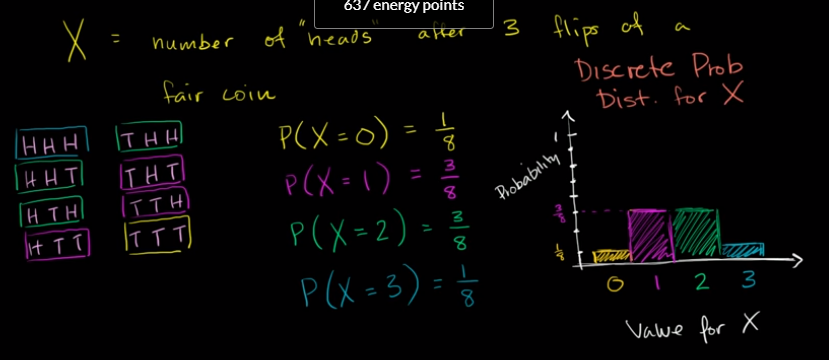 637 energy points
X = number of "heads" after 3 flips of a
fair coin
HHH
THH
HHT
THT
HTH
TTH
HTT
TTT
P(X=0) = 1/8
P(X=1) = 3/8
P(X=2) = 3/8
P(X=3) = 1/8
Discrete Prob
Dist. for X
Probability
1
3/8
1/8
0 1 2 3
Value for X